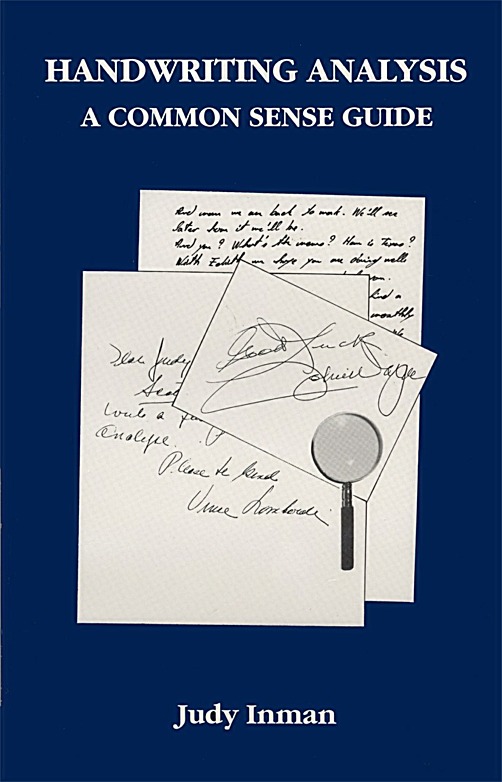 HANDWRITING ANALYSIS
A COMMON SENSE GUIDE
And soon we are back to work. We'll see
later how it we'll be.
And you? What's the news? How is Timo?
With Edith we hope you are doing well
monthly
Good Luck
Dear Judy
write a
analyse.
Please be kind
Vince Lombardi
Judy Inman